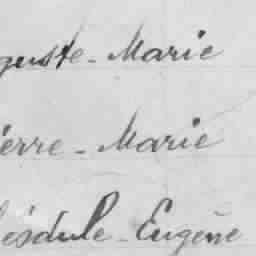 guste-Marie
ierre-Marie
esdule-Eugène